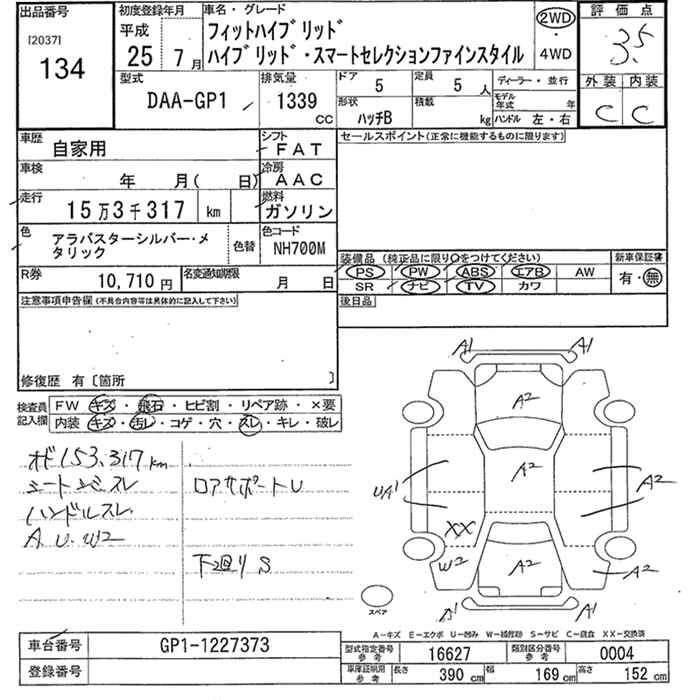 出品番号
[2037]
134
初度登録年月
平成
25年 7月
車名・グレード
フィットハイブリッド
ハイブリッド・スマートセレクションファインスタイル
2WD
・
4WD
評価点
3.5
外装 内装
C C
型式
DAA-GP1
排気量
1339
CC
ドア
5
定員
5 人
形状
ハッチB
積載
kg
ディーラー・並行
モデル年式 年
ハンドル 左・右
車歴
自家用
シフト
FAT
車検
年 月( 日)
冷房
AAC
走行
15万3千317 km
燃料
ガソリン
色
アラバスターシルバー・メ
タリック
色替
色コード
NH700M
R券
10,710 円
名変通知期限
月 日
セールスポイント(正常に機能するものに限ります)
装備品 (純正品に限り○をつけてください)
PS PW ABS エアB AW
SR ナビ TV カワ
新車保証書
有・無
後日品
注意事項申告欄(不具合内容等は具体的に記入して下さい)
修復歴 有〔箇所 〕
検査員
記入欄
FW キズ・飛石・ヒビ割・リペア跡・×要
内装 キズ・汚レ・コゲ・穴・スレ・キレ・破レ
153,317km
シートシミスレ
ハンドルスレ
A U W2
ロアサポートU
下回りS
A1 A1
A2
A2
UA1
A2
XX
W2
A2
A2
A1 A1
スペア
A-キズ E-エクボ U-凹み W-補修跡 S-サビ C-腐食 XX-交換済
車台番号
GP1-1227373
登録番号
型式指定番号
参考
16627
類別区分番号
参考
0004
車庫証明用
参考
長さ
390 cm
幅
169 cm
高さ
152 cm